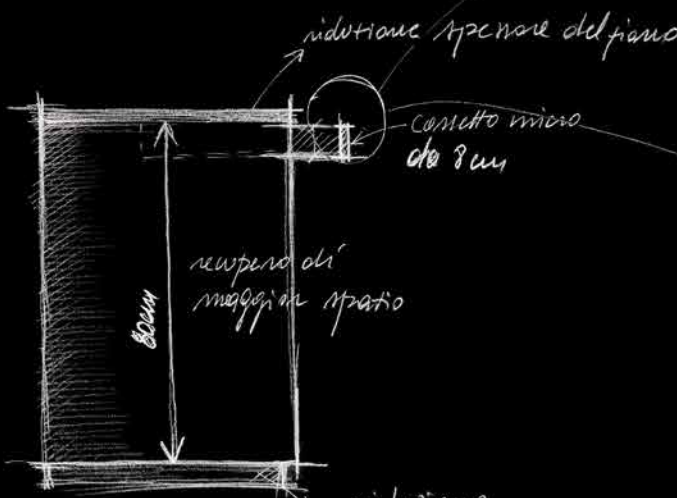 riduzione spessore del piano
cassetto micro
da 8 cm
recupero di
maggior spazio
80cm